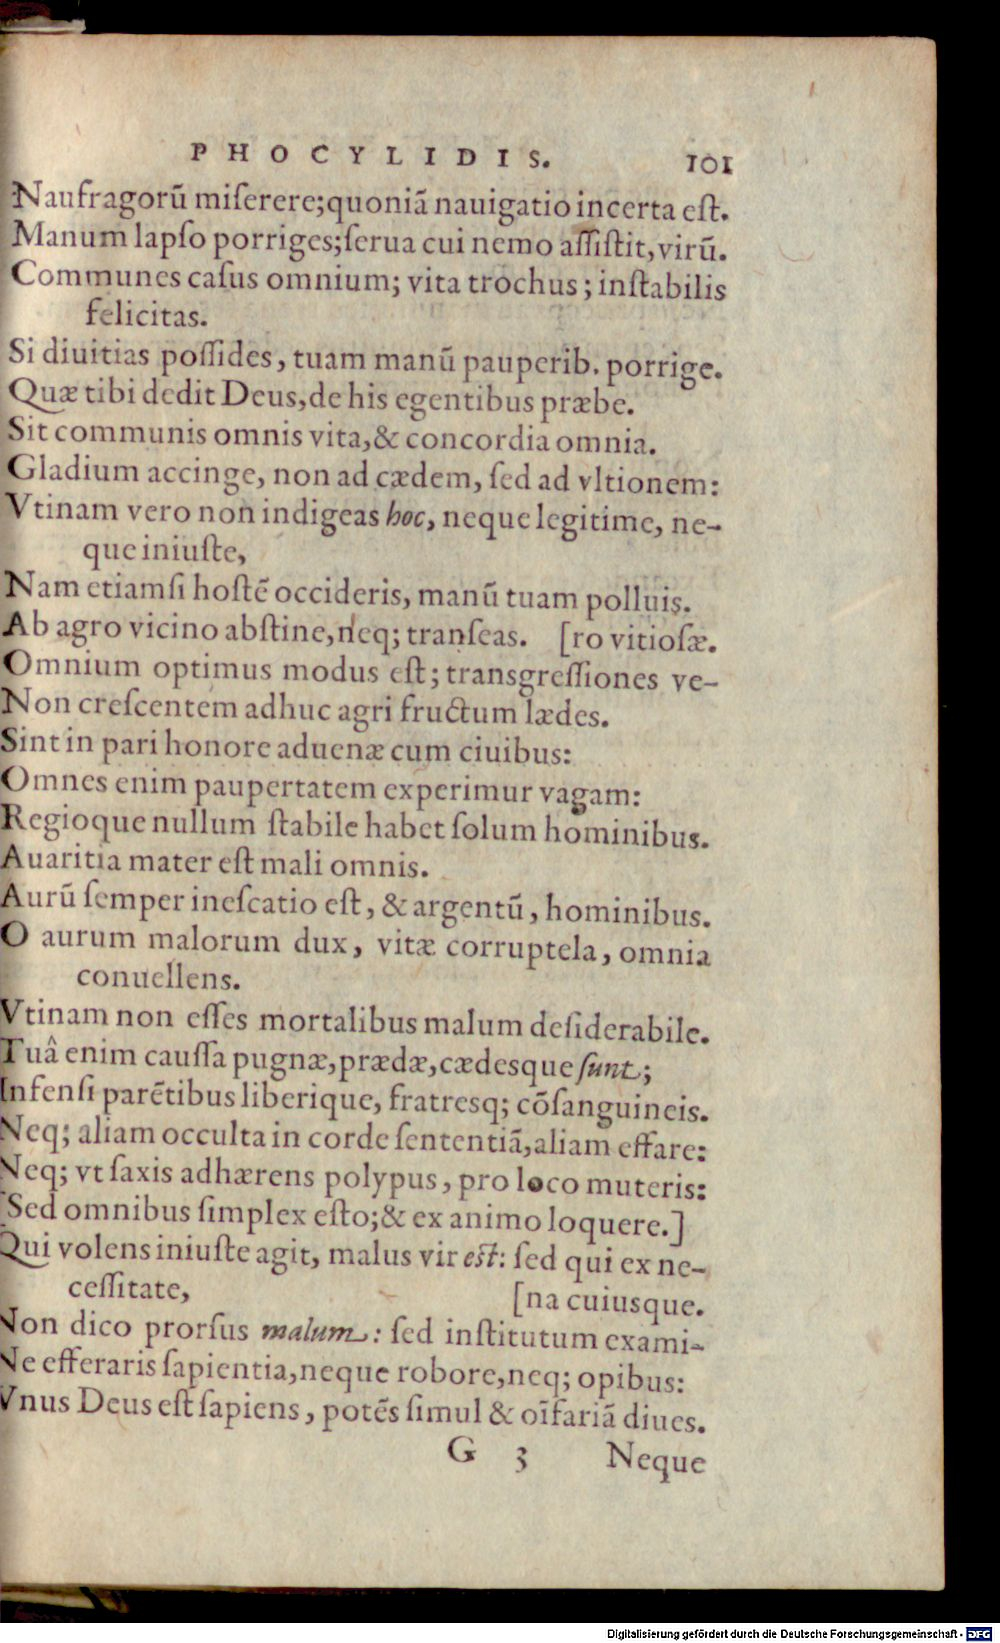 PHOCYLIDIS. 101
Naufragorū miſerere;quoniā nauigatio incerta eſt.
Manum lapſo porriges;ſerua cui nemo aſſiſtit,virū.
Communes caſus omnium; vita trochus; inſtabilis
felicitas.
Si diuitias poſſides, tuam manū pauperib. porrige.
Quæ tibi dedit Deus,de his egentibus præbe.
Sit communis omnis vita,& concordia omnia.
Gladium accinge, non ad cædem, ſed ad vltionem:
Vtinam vero non indigeas hoc, neque legitime, ne-
que iniuſte,
Nam etiamſi hoſtē occideris, manū tuam polluis.
Ab agro vicino abſtine,neq; tranſeas. [ro vitioſæ.
Omnium optimus modus eſt; transgreſſiones ve-
Non creſcentem adhuc agri fructum lædes.
Sint in pari honore aduenæ cum ciuibus:
Omnes enim paupertatem experimur vagam:
Regioque nullum ſtabile habet ſolum hominibus.
Auaritia mater eſt mali omnis.
Aurū ſemper ineſcatio eſt, & argentū, hominibus.
O aurum malorum dux, vitæ corruptela, omnia
conuellens.
Vtinam non eſſes mortalibus malum deſiderabile.
Tuâ enim cauſſa pugnæ,prædæ,cædesque ſunt;
Infenſi parētibus liberique, fratresq; cōſanguineis.
Neq; aliam occulta in corde ſententiā,aliam effare:
Neq; vt ſaxis adhærens polypus, pro loco muteris:
[Sed omnibus ſimplex eſto;& ex animo loquere.]
Qui volens iniuſte agit, malus vir eſt: ſed qui ex ne-
ceſſitate, [na cuiusque.
Non dico prorſus malum: ſed inſtitutum exami-
Ne efferaris ſapientia,neque robore,neq; opibus:
Vnus Deus eſt ſapiens, potēs ſimul & oīfariā diues.
G 3 Neque
Digitalisierung gefördert durch die Deutsche Forschungsgemeinschaft - DFG